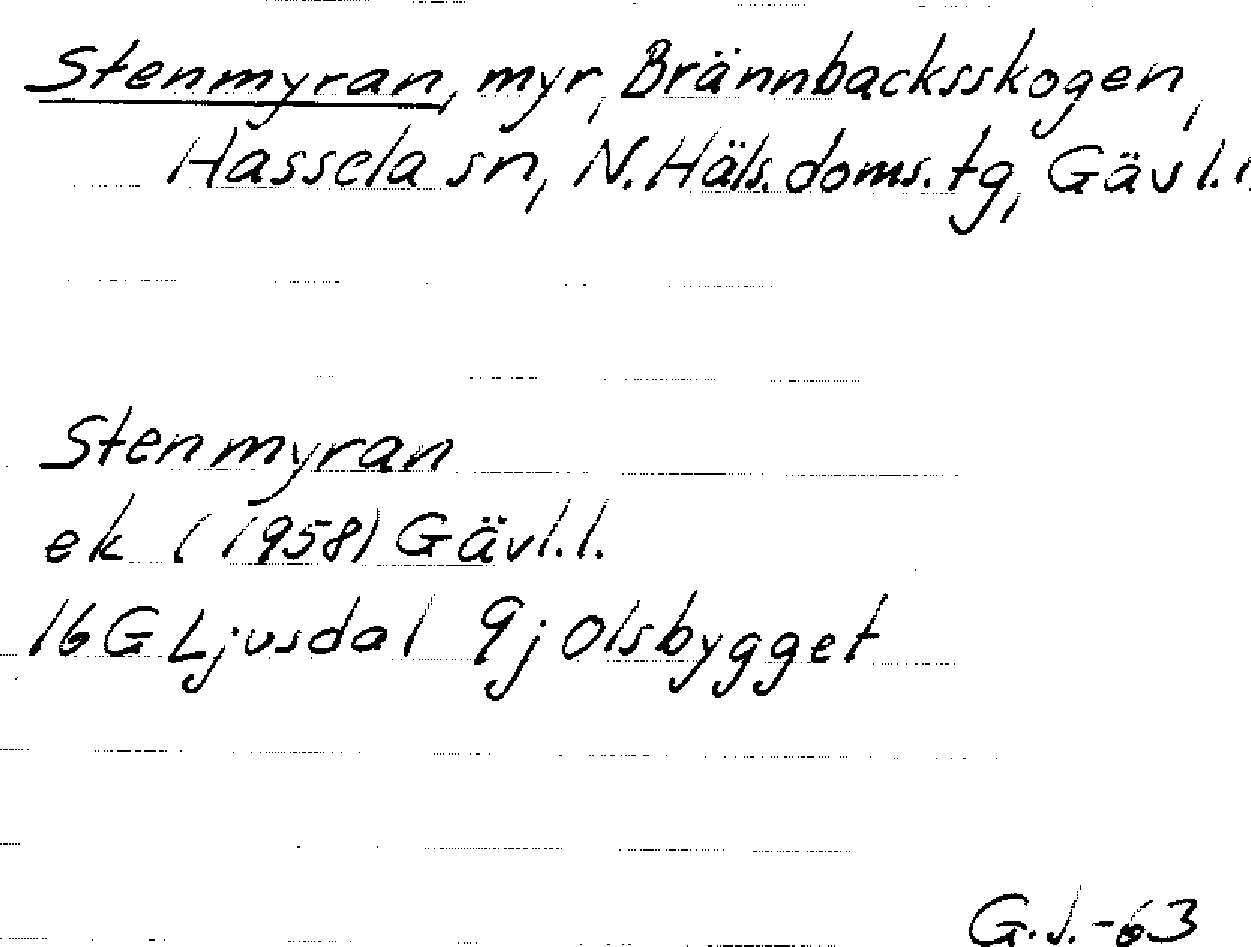 Stenmyran, myr, Brännbacksskogen,
Hassela sn, N. Häls. doms. tg, Gävl. l.
Stenmyran
ek (1958) Gävl. l.
16 G Ljusdal 9j Olsbygget
G.J.-63